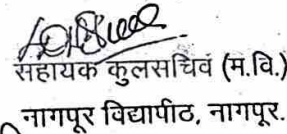 सहायक कुलसचिव (म.वि.)
नागपूर विद्यापीठ, नागपूर.